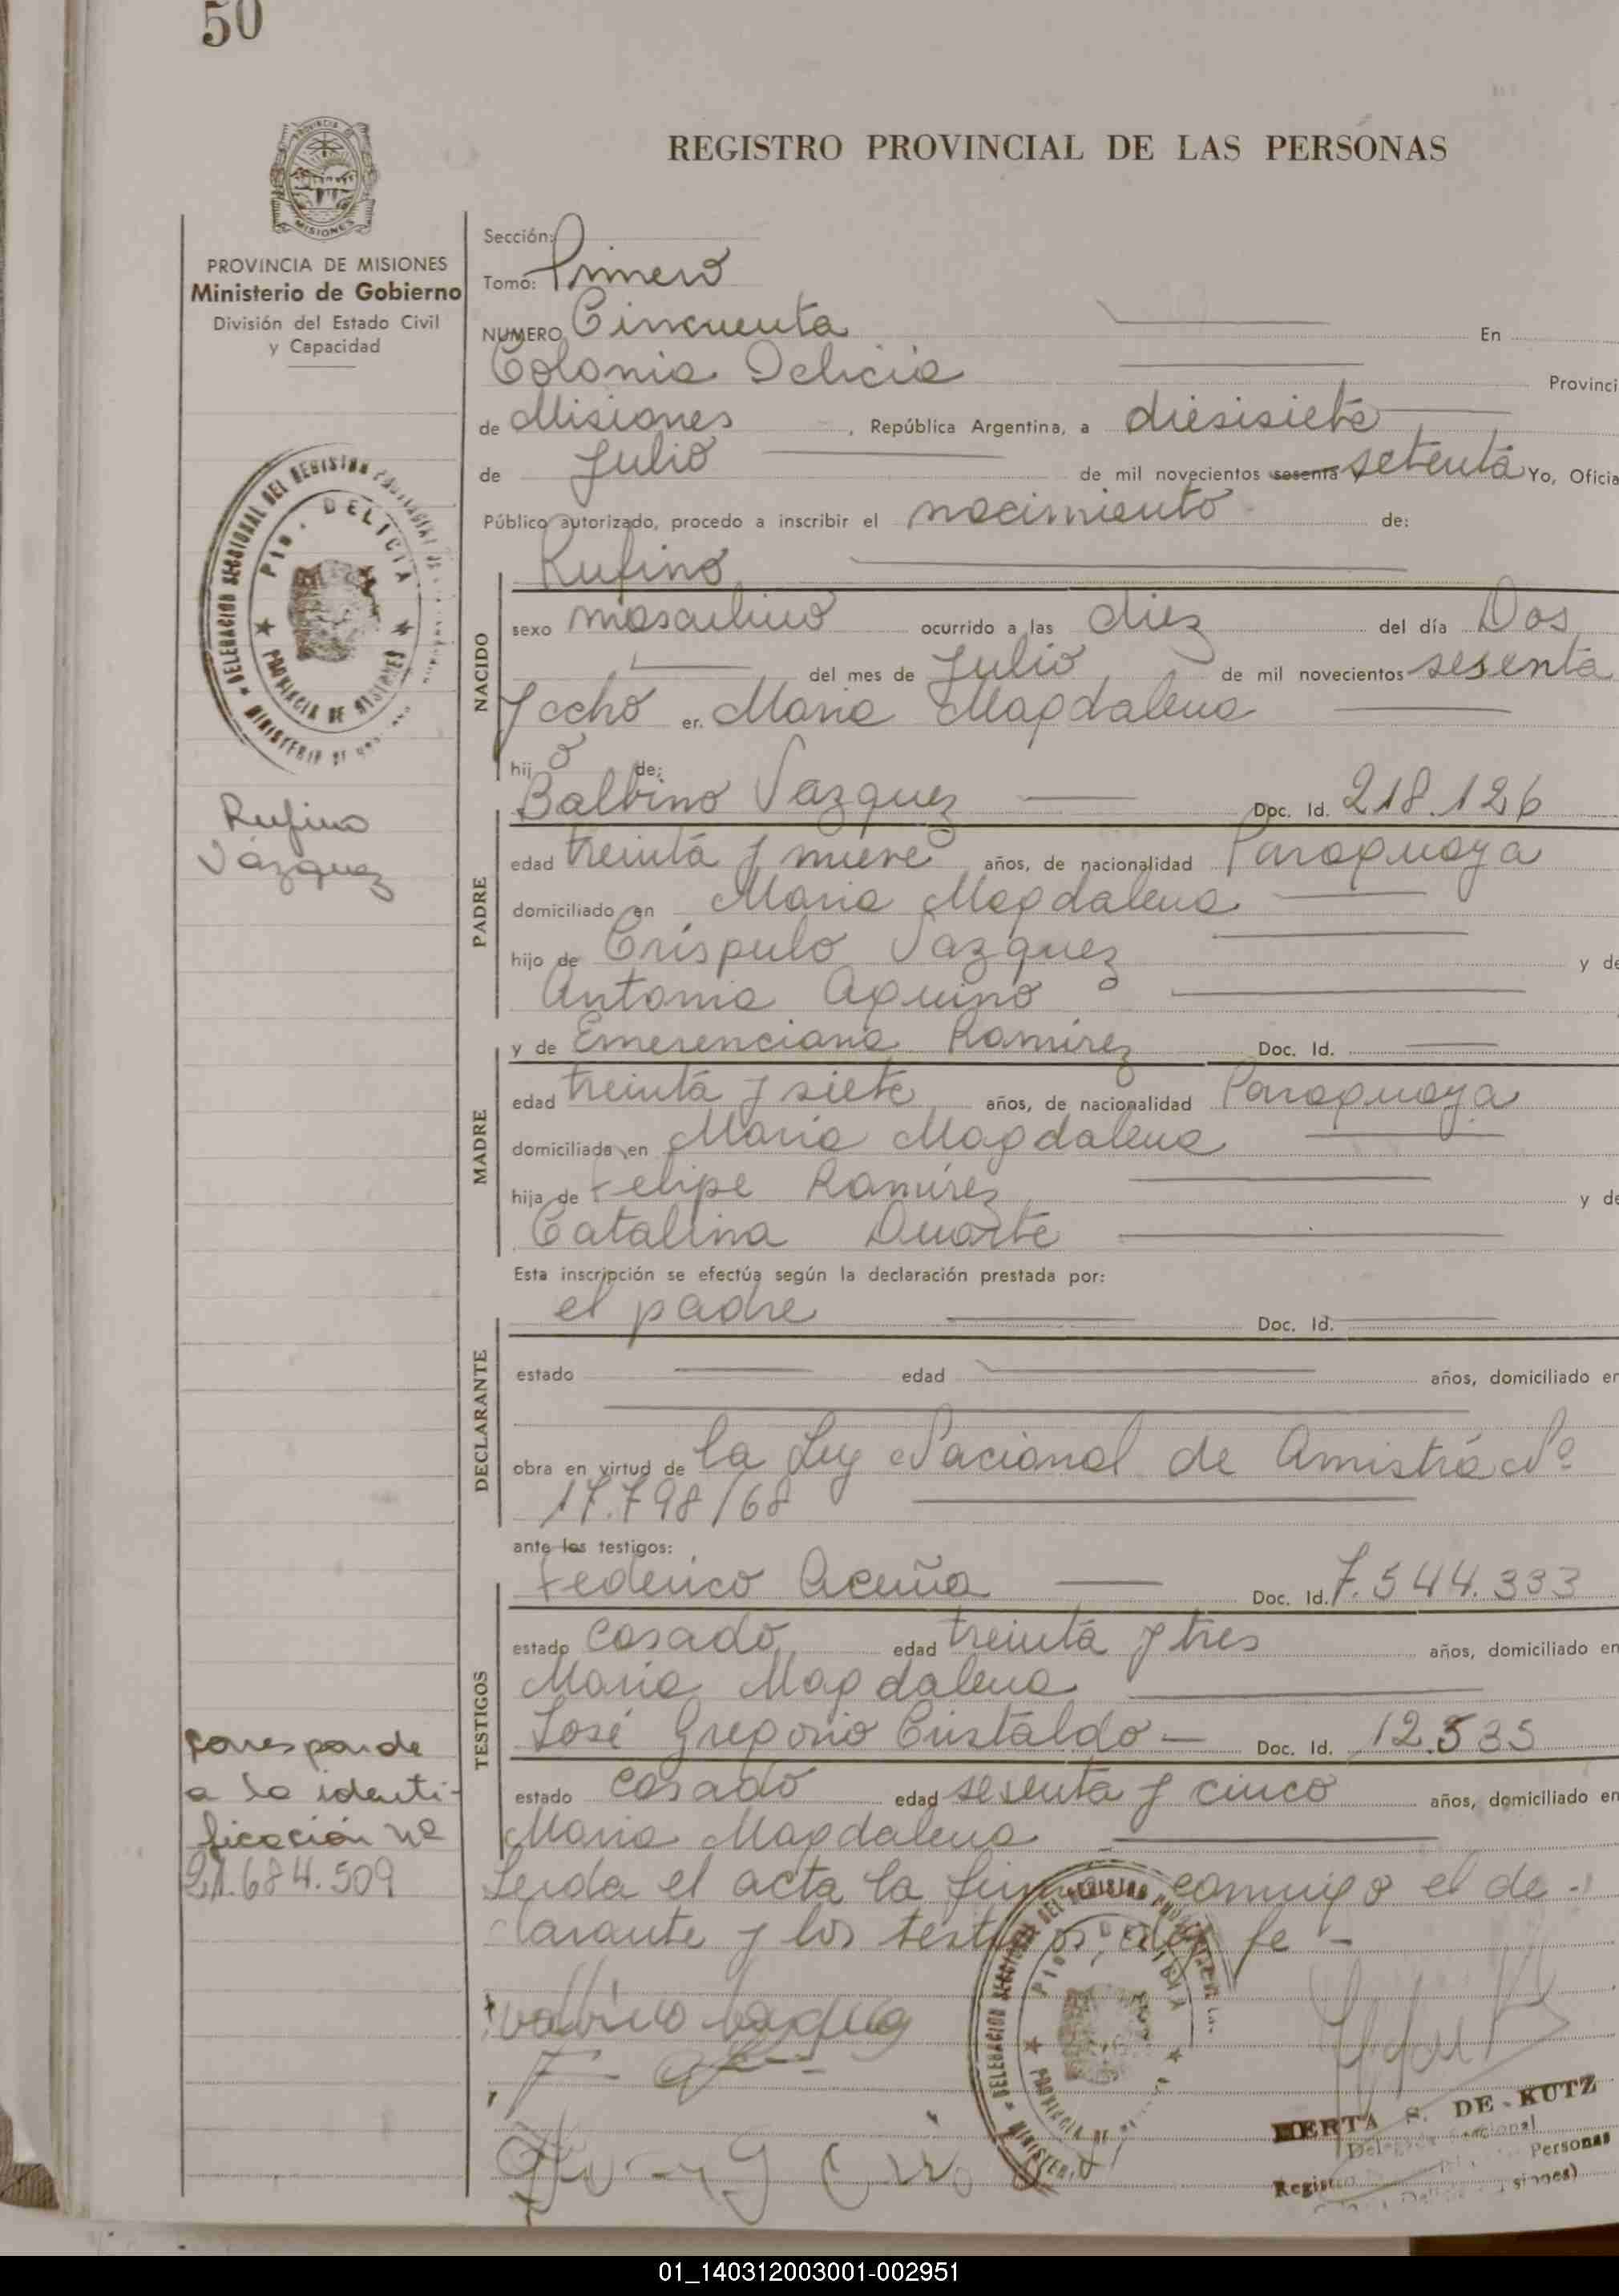 50
REGISTRO PROVINCIAL DE LAS PERSONAS
PROVINCIA DE MISIONES
Ministerio de Gobierno
División del Estado Civil
y Capacidad
Sección:
Tomo: Primero
NUMERO Cincuenta En
Colonia Delicia Provinci
de Misiones, República Argentina, a diesisiete
de Julio de mil novecientos sesenta setenta Yo, Oficia
Público autorizado, procedo a inscribir el nacimiento de:
Rufino
NACIDO
sexo masculino ocurrido a las diez del día Dos
del mes de Julio de mil novecientos sesenta
y ocho en Maria Magdalena
hijo de:
Balbino Vazquez Doc. Id. 218.126
PADRE
edad treinta y nueve años, de nacionalidad Paraguaya
domiciliado en Maria Magdalena
hijo de Crispulo Vazquez y de
Antonia Aquino
y de Emerenciana Ramirez Doc. Id.
MADRE
edad treinta y siete años, de nacionalidad Paraguaya
domiciliada en Maria Magdalena
hija de Felipe Ramirez y de
Catalina Duarte
Esta inscripción se efectúa según la declaración prestada por:
el padre Doc. Id.
DECLARANTE
estado edad años, domiciliado en
obra en virtud de la Ley Nacional de Amistía Nº
17.798/68
ante los testigos:
Federico Acuña Doc. Id. 7.544.333
TESTIGOS
estado casado edad treinta y tres años, domiciliado en
Maria Magdalena
José Gregorio Cristaldo Doc. Id. 12.535
estado casado edad sesenta y cinco años, domiciliado en
Maria Magdalena
Leida el acta la firman conmigo el de-
clarante y los testigos, doy fe -
DELEGACION SECCIONAL DEL REGISTRO PROVINCIAL DE
Pto. DELICIA
PROVINCIA DE MISIONES
MINISTERIO DE
Rufino
Vázquez
Corresponde
a la identi-
ficación nº
21.684.509
DELEGACION SECCIONAL DEL REGISTRO
Pto. DELICIA
PROVINCIA DE
MINISTERIO
HERTA S. DE KUTZ
Delegada Seccional
Registro Personas
01_140312003001-002951